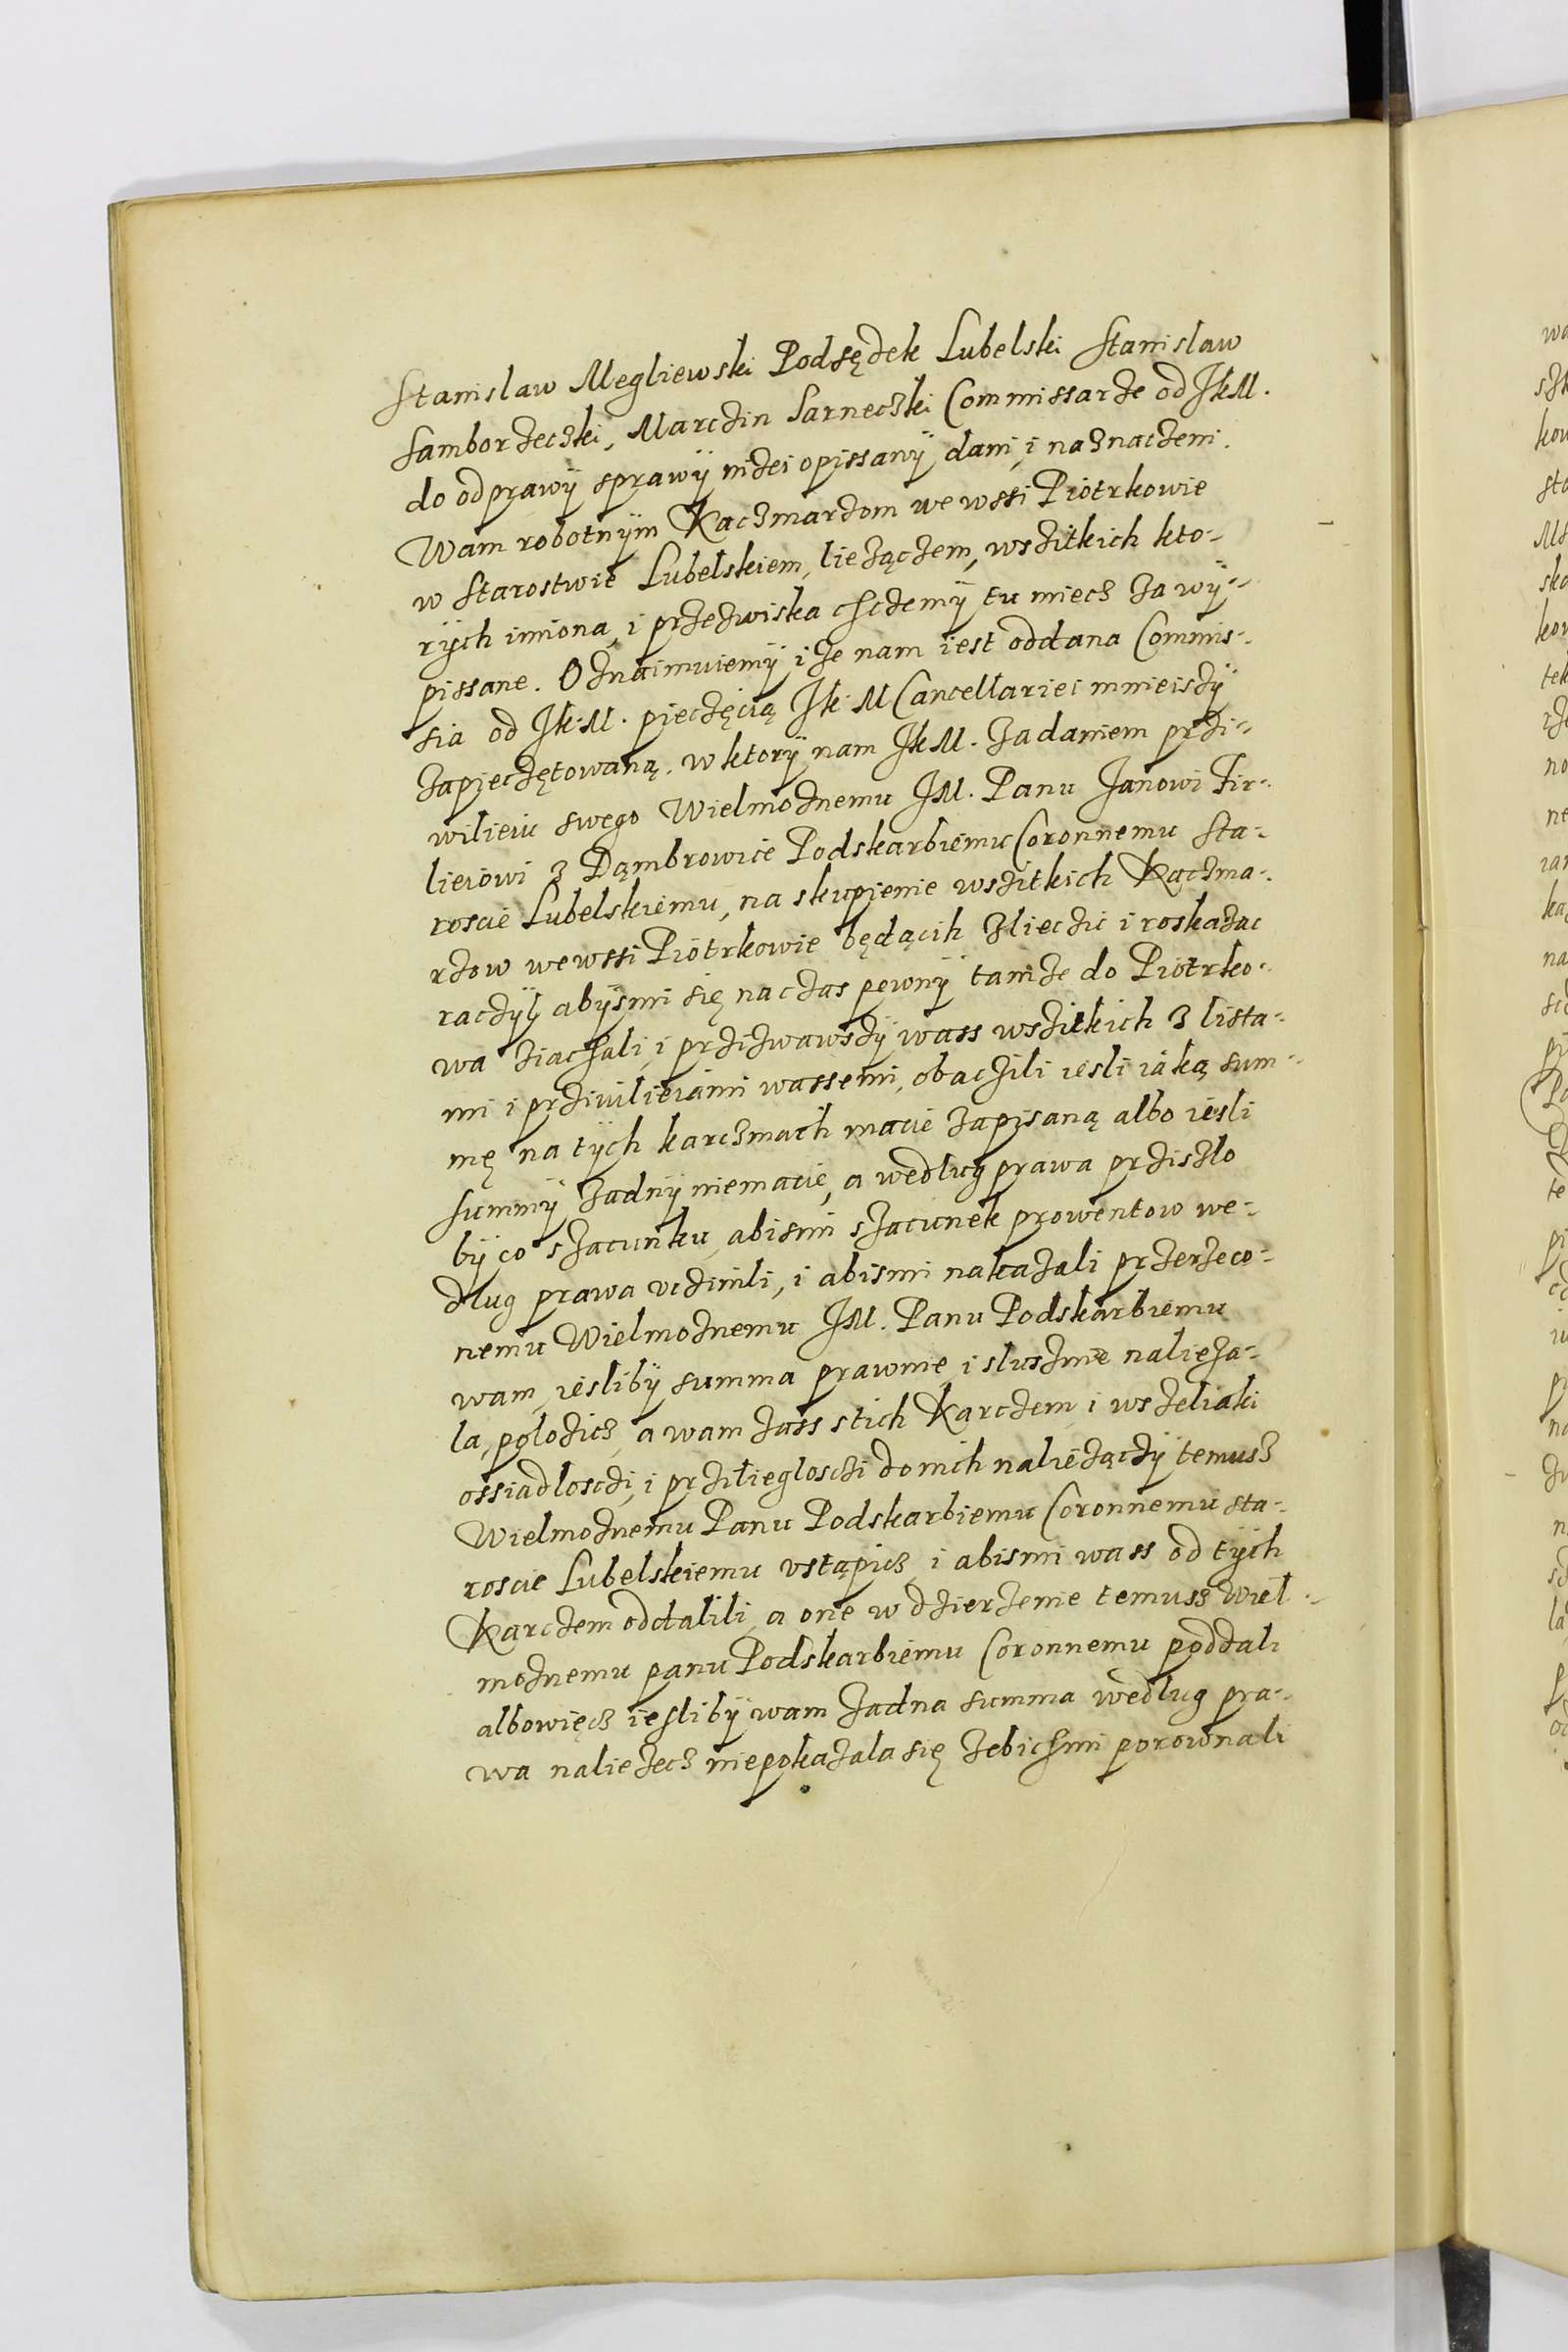 Stanislaw Megliewski Podsędek Lubelski Stanislaw
Samborzeczki, Marczin Sarneczki Commissarze od JkM.
do odprawÿ sprawÿ nizei opissanÿ dani, i naznaczeni.
Wam robotnÿm Kaczmarzom we wssi Piotrkowie
w Starostwie Lubelskiem, liezączem, wszitkich kto-
rÿch imiona, i przezwiska chczemÿ tu miecz za wÿ-
pissane. Oznaimuiemÿ ize nam iest oddana Commis-
sia od Jk.M. pieczęcią Jk.M Cancellariei mnieiszÿ
zapieczętowaną. w ktorÿ nam JkM. za daniem przi-
wilieiu swego Wielmoznemu JM. Panu Janowi Fir-
lieiowi z Dąmbrowice Podskarbiemu Coronnemu Sta-
roscie Lubelskiemu, na skupienie wszitkich Kaczma-
rzow we wssi Piotrkowie będącih zlieczic i roskazac
raczÿl abÿsmi się na czas pewnÿ tamze do Piotrko-
wa ziachali, i przizwawszÿ wass wszitkich z lista-
mi i przivilieiami wassemi, obaczili iesli iaką sum-
mę na tÿch karczmach macie zapisaną albo iesli
summÿ zadnÿ niemacie, a wedlug prawa priszlo
bÿ co szacunku, abismi szacunek prowentow we-
dlug prawa uczinili, i abismi nakazali przerzeco-
nemu Wielmoznemu JM. Panu Podskarbiemu
wam, iesli bÿ summa prawnie, i slusznie nalieza-
la, polozicz, a wam zass s tich Karczem, i wszeliaki
ossiadlosczi, i przilieglosczi do nich naliezączÿ temusz
Wielmoznemu Panu Podskarbiemu Coronnemu Sta-
roscie Lubelskiemu ustąpicz, i abismi wass od tÿch
Karczem oddalili, a one w dzierzenie temusz Wiel-
moznemu panu Podskarbiemu Coronnemu poddali
albowięcz iesli bÿ wam zadna summa wedlug pra-
wa naliezecz niepokazala się zebichmi porownali